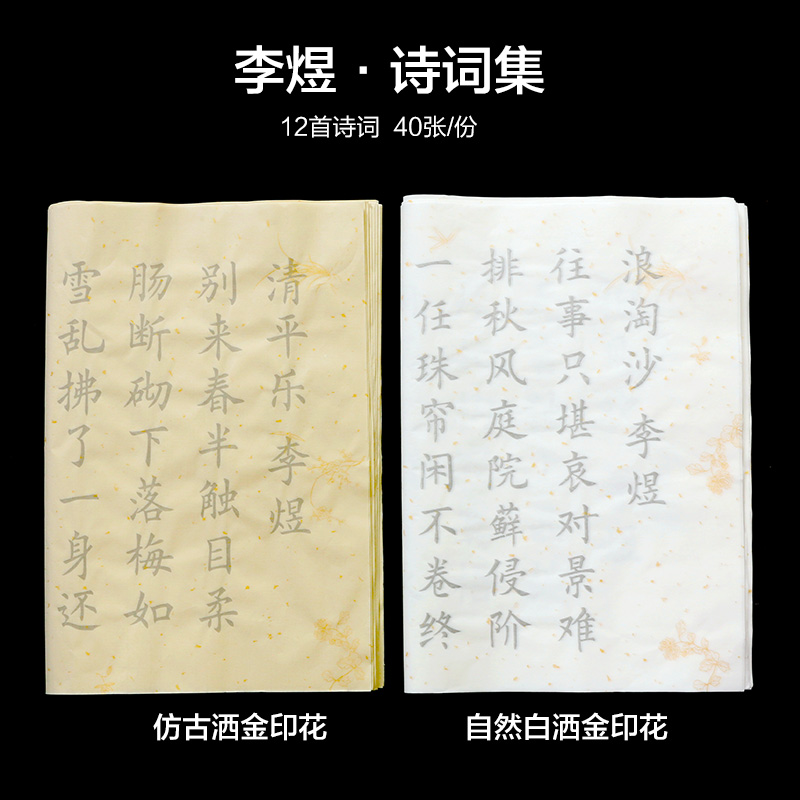 李煜·诗词集
12首诗词 40张/份
清平乐 李煜
别来春半触目柔
肠断砌下落梅如
雪乱拂了一身还
浪淘沙 李煜
往事只堪哀对景难
排秋风庭院藓侵阶
一任珠帘闲不卷终
仿古洒金印花
自然白洒金印花